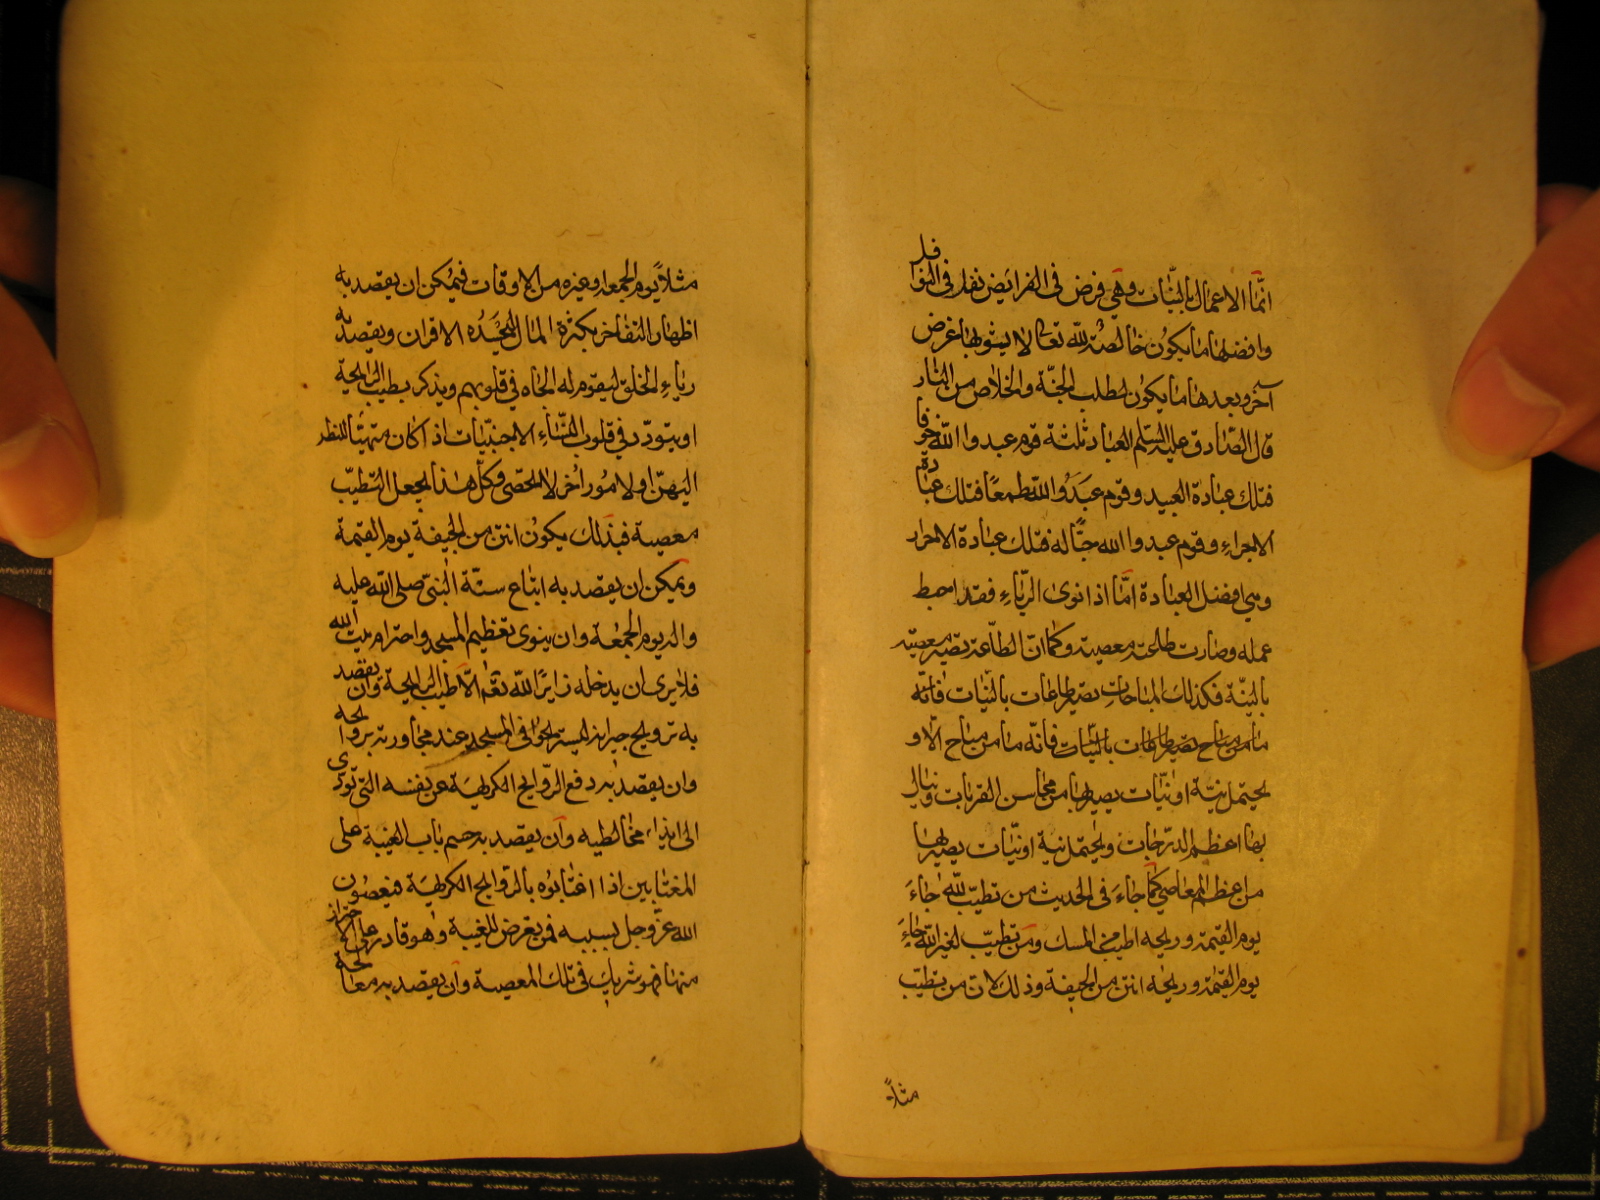 انّما الاعمال بالنيّات وهي فرض في الفرايض نفل في النوافل
وافضلها ما يكون خالصة لله تعالى لا يشوبها غرض
آخر وبعدها ما يكون لطلب الجنّة والخلاص من النار
قال الصّادق عليه السّلم العباد ثلثة قوم عبدوا الله خوفا
فتلك عبادة العبيد وقوم عبدوا الله طمعاً فتلك عبادة
الاجراء وقوم عبدوا الله حبّا له فتلك عبادة الاحرار
وهي افضل العبادة امّا اذا نوى الريّاء فقد احبط
عمله وصارت طاعته معصية وكما انّ الطّاعة تصير معصية
بالنيّة فكذلك المباحات يصير طاعات بالنيّات فانّه
ما من مباح يصير طاعات بالنيّات فانّه ما من مباح الّا و
يحتمل نيّة او نيّات يصير بها من محاسن القربات وينال
بها اعظم الدرجات ويحتمل نية او نيّات يصير بها
من اعظم المعاصي كما جاء في الحديث من تطيّب لله جاء
يوم القيمة وريحه اطيب من المسك ومن تطيّب لغير الله جاء
يوم القيمة وريحه انتن من الجيفة وذلك لان من يتطيّب
مثلاً
مثلاً يوم الجمعة او غيره من الاوقات فيمكن ان يقصد به
اظهار التفاخر بكثرة المال ليحسده الاقران ويقصد به
رياء الخلق ليقوم له الجاه في قلوبهم ويذكر بطيب الرايحة
او يتودّد في قلوب النساء الاجنبيّات اذا كان متهيّأ للنظر
اليهنّ او لامور اُخر لا تحصى وكلّ هذا يجعل التطيّب
معصية فبذلك يكون انتن من الجيفة يوم القيمة
ويمكن ان يقصد به اتباع سنّة النبيّ صلى الله عليه
واله يوم الجمعة وان ينوى تعظيم المسجد واحترام بيت الله
فلا يرى ان يدخله زايرًا لله تعم الّا طيب الرايحة وان يقصد
به ترويح جيرانه ليستريحوا في المسجد عند مجاورته بروايحه
وان يقصد به دفع الرّوايح الكريهة عن نفسه التي تودّى
الى ايذاء مخالطيه وان يقصد به حسم باب الغيبة على
المغتابين اذا اغتابوه بالروايح الكريهة فيعصون
الله عزّ وجل بسببه فمن تعرض للغيبة وهو قادر على الاحتراز
منها فهو شريك في تلك المعصية وان يقصد به معالجة